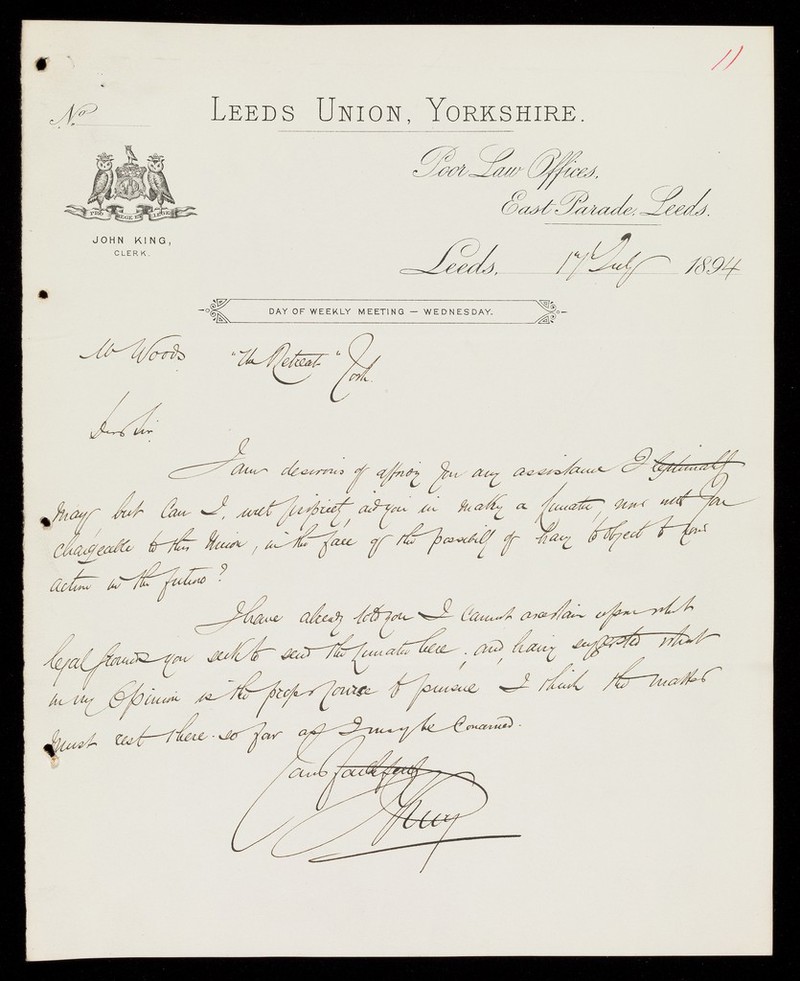 11
No
LEEDS UNION, YORKSHIRE.
Poor Law Offices,
East Parade, Leeds.
PRO REGE ET LEGE
JOHN KING,
CLERK.
Leeds, July 1894
DAY OF WEEKLY MEETING — WEDNESDAY.
Mr Woods "The Retreat" York.
Dear Sir
I am desirous of affording you any assistance I legitimately
may, but can I, with propriety, aid you in making a lunatic, now not
chargeable to this Union, in the face of the possibility of having to object to
action in the future?
I have already told you I cannot ascertain upon what
legal grounds you seek to send the lunatic here; and, having suggested what
in my Opinion is the proper course to pursue I think the matter
must rest there so far as I may be concerned.
Yours faithfully
J King